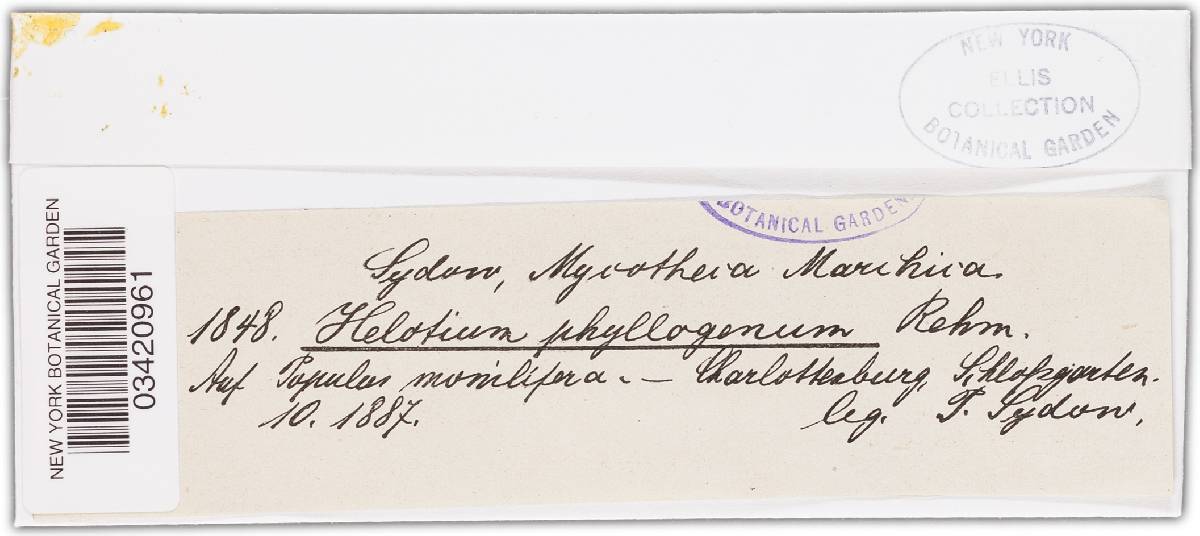 NEW YORK
ELLIS
COLLECTION
BOTANICAL GARDEN
NEW YORK BOTANICAL GARDEN
03420961
BOTANICAL GARDEN
Sydow, Mycotheca Marchica.
1848. Helotium phyllogenum Rehm.
Auf Populus monilifera. — Charlottenburg, Schloßgarten.
10. 1887. leg. P. Sydow.